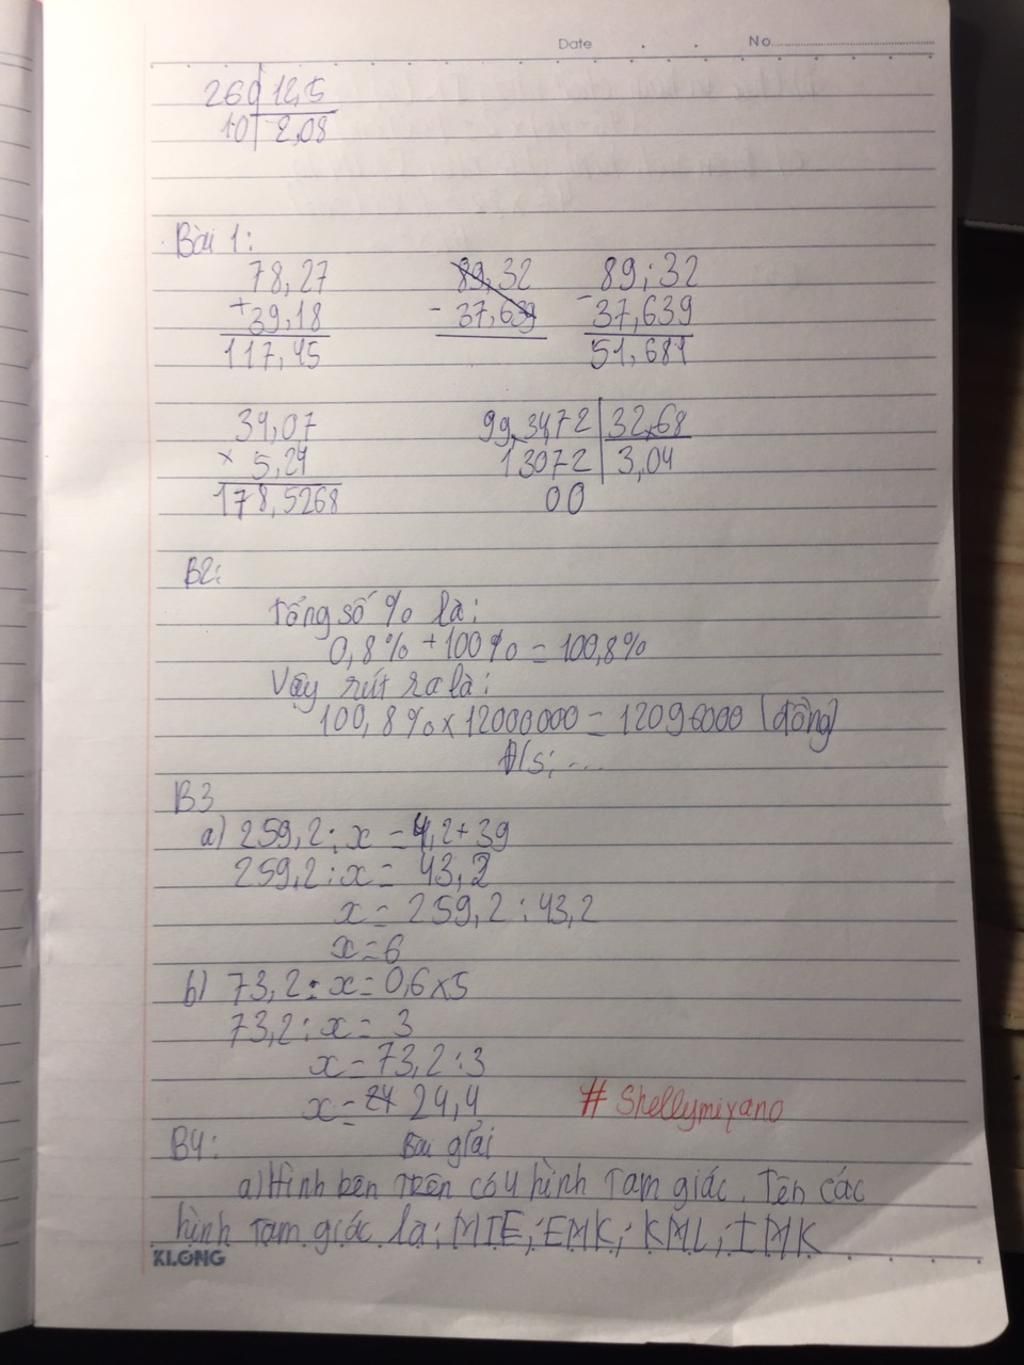 Date . . No
260 12,5
10 2,08
Bài 1:
78,27 89,32 89,32
+ 39,18 - 37,639 - 37,639
117,45 51,681
34,07 99,3472 32,68
× 5,24 13072 3,04
178,5268 00
B2:
Tổng số % là:
0,8% + 100% = 100,8%
Vậy rút ra là:
100,8% x 12000000 = 12096000 (đồng)
Đ/s: ...
B3
a) 259,2 : x = 4,2 + 39
259,2 : x = 43,2
x = 259,2 : 43,2
x = 6
b) 73,2 : x = 0,6 x 5
73,2 : x = 3
x = 73,2 : 3
x = 24,4
# Shellymiyano
B4: Bài giải
a) Hình bên trên có 4 hình tam giác. Tên các
hình tam giác là: MIE; EMK; KML; IMK
KLONG